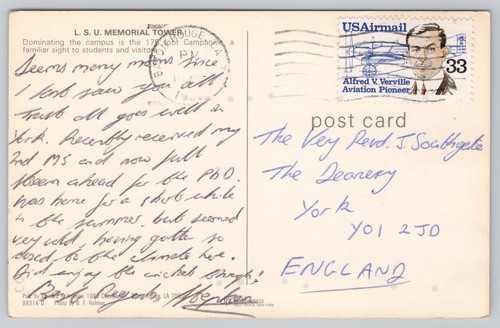 L. S. U. MEMORIAL TOWER
Dominating the campus is the 175 foot Campanile, a
familiar sight to students and visitors.
Seems many moons since
I last saw you all.
Trust all goes well in
York. Recently received my
2nd MS and now full
steam ahead for the PhD.
Was home for a short while
in the summer, but seemed
very cold, having gotten so
used to the climate here.
Did enjoy the cricket though!
Best Regards, Stephen
88314-D Photo by B. F. Holmes
BATON ROUGE LA
PM
USAirmail
33
Alfred V. Verville
Aviation Pioneer
post card
The Very Revd. J. Southgate
The Deanery
York
YO1 2JD
ENGLAND